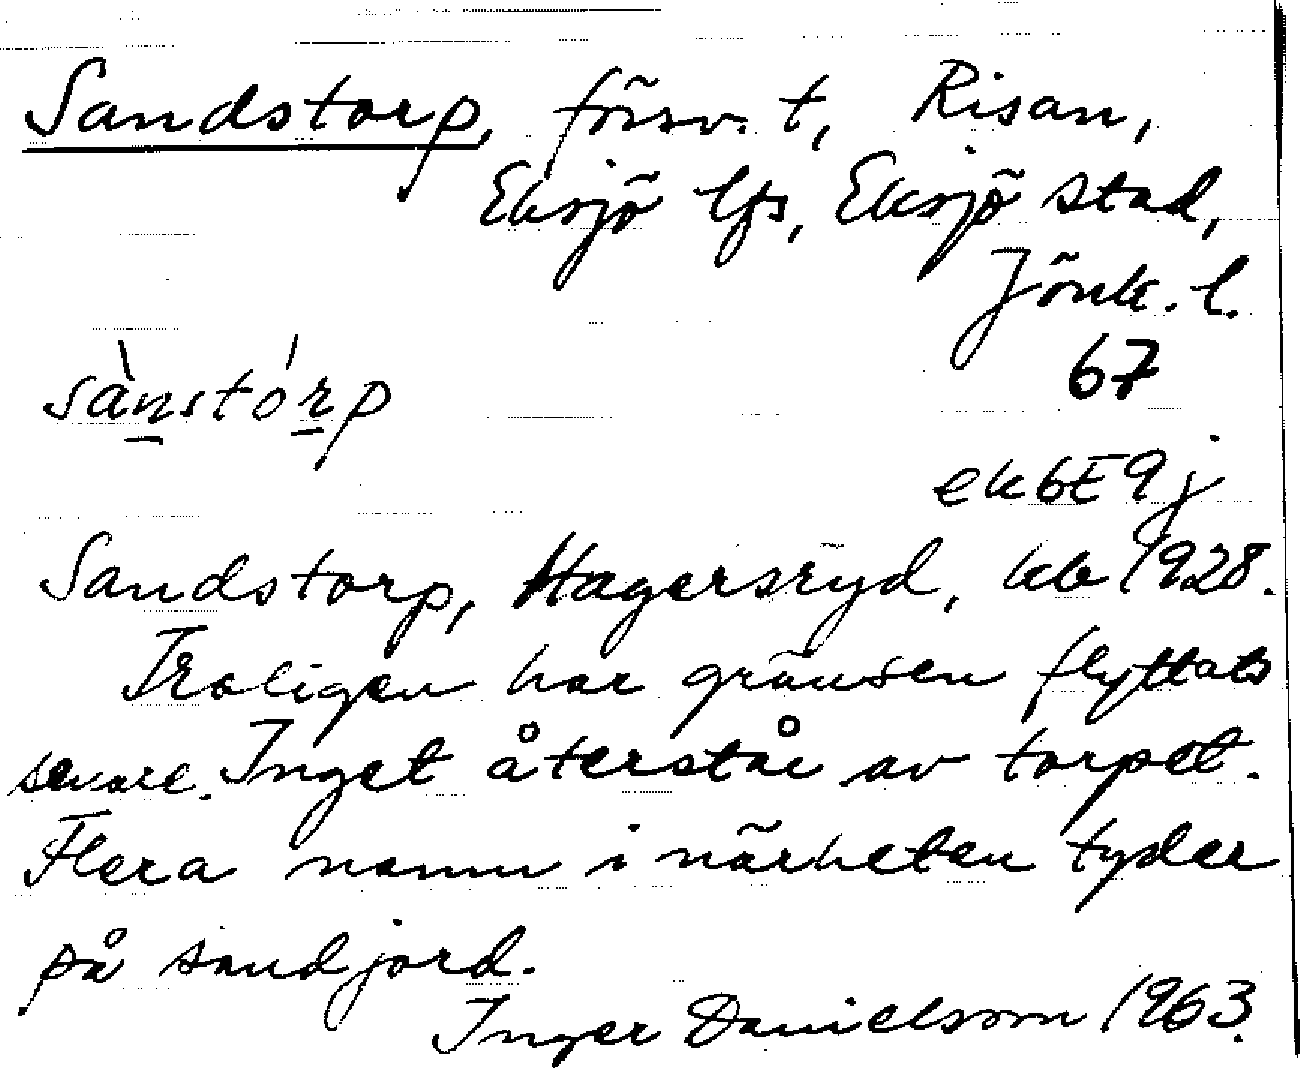 Sandstorp, försv. t, Risan,
Eksjö lfs, Eksjö stad,
Jönk. l.
67
sànstórp
ek 6E9j
Sandstorp, Hagersryd, kb 1928.
Troligen har gränsen flyttats
senare. Inget återstår av torpet.
Flera namn i närheten tyder
på sandjord.
Inger Danielsson 1963.